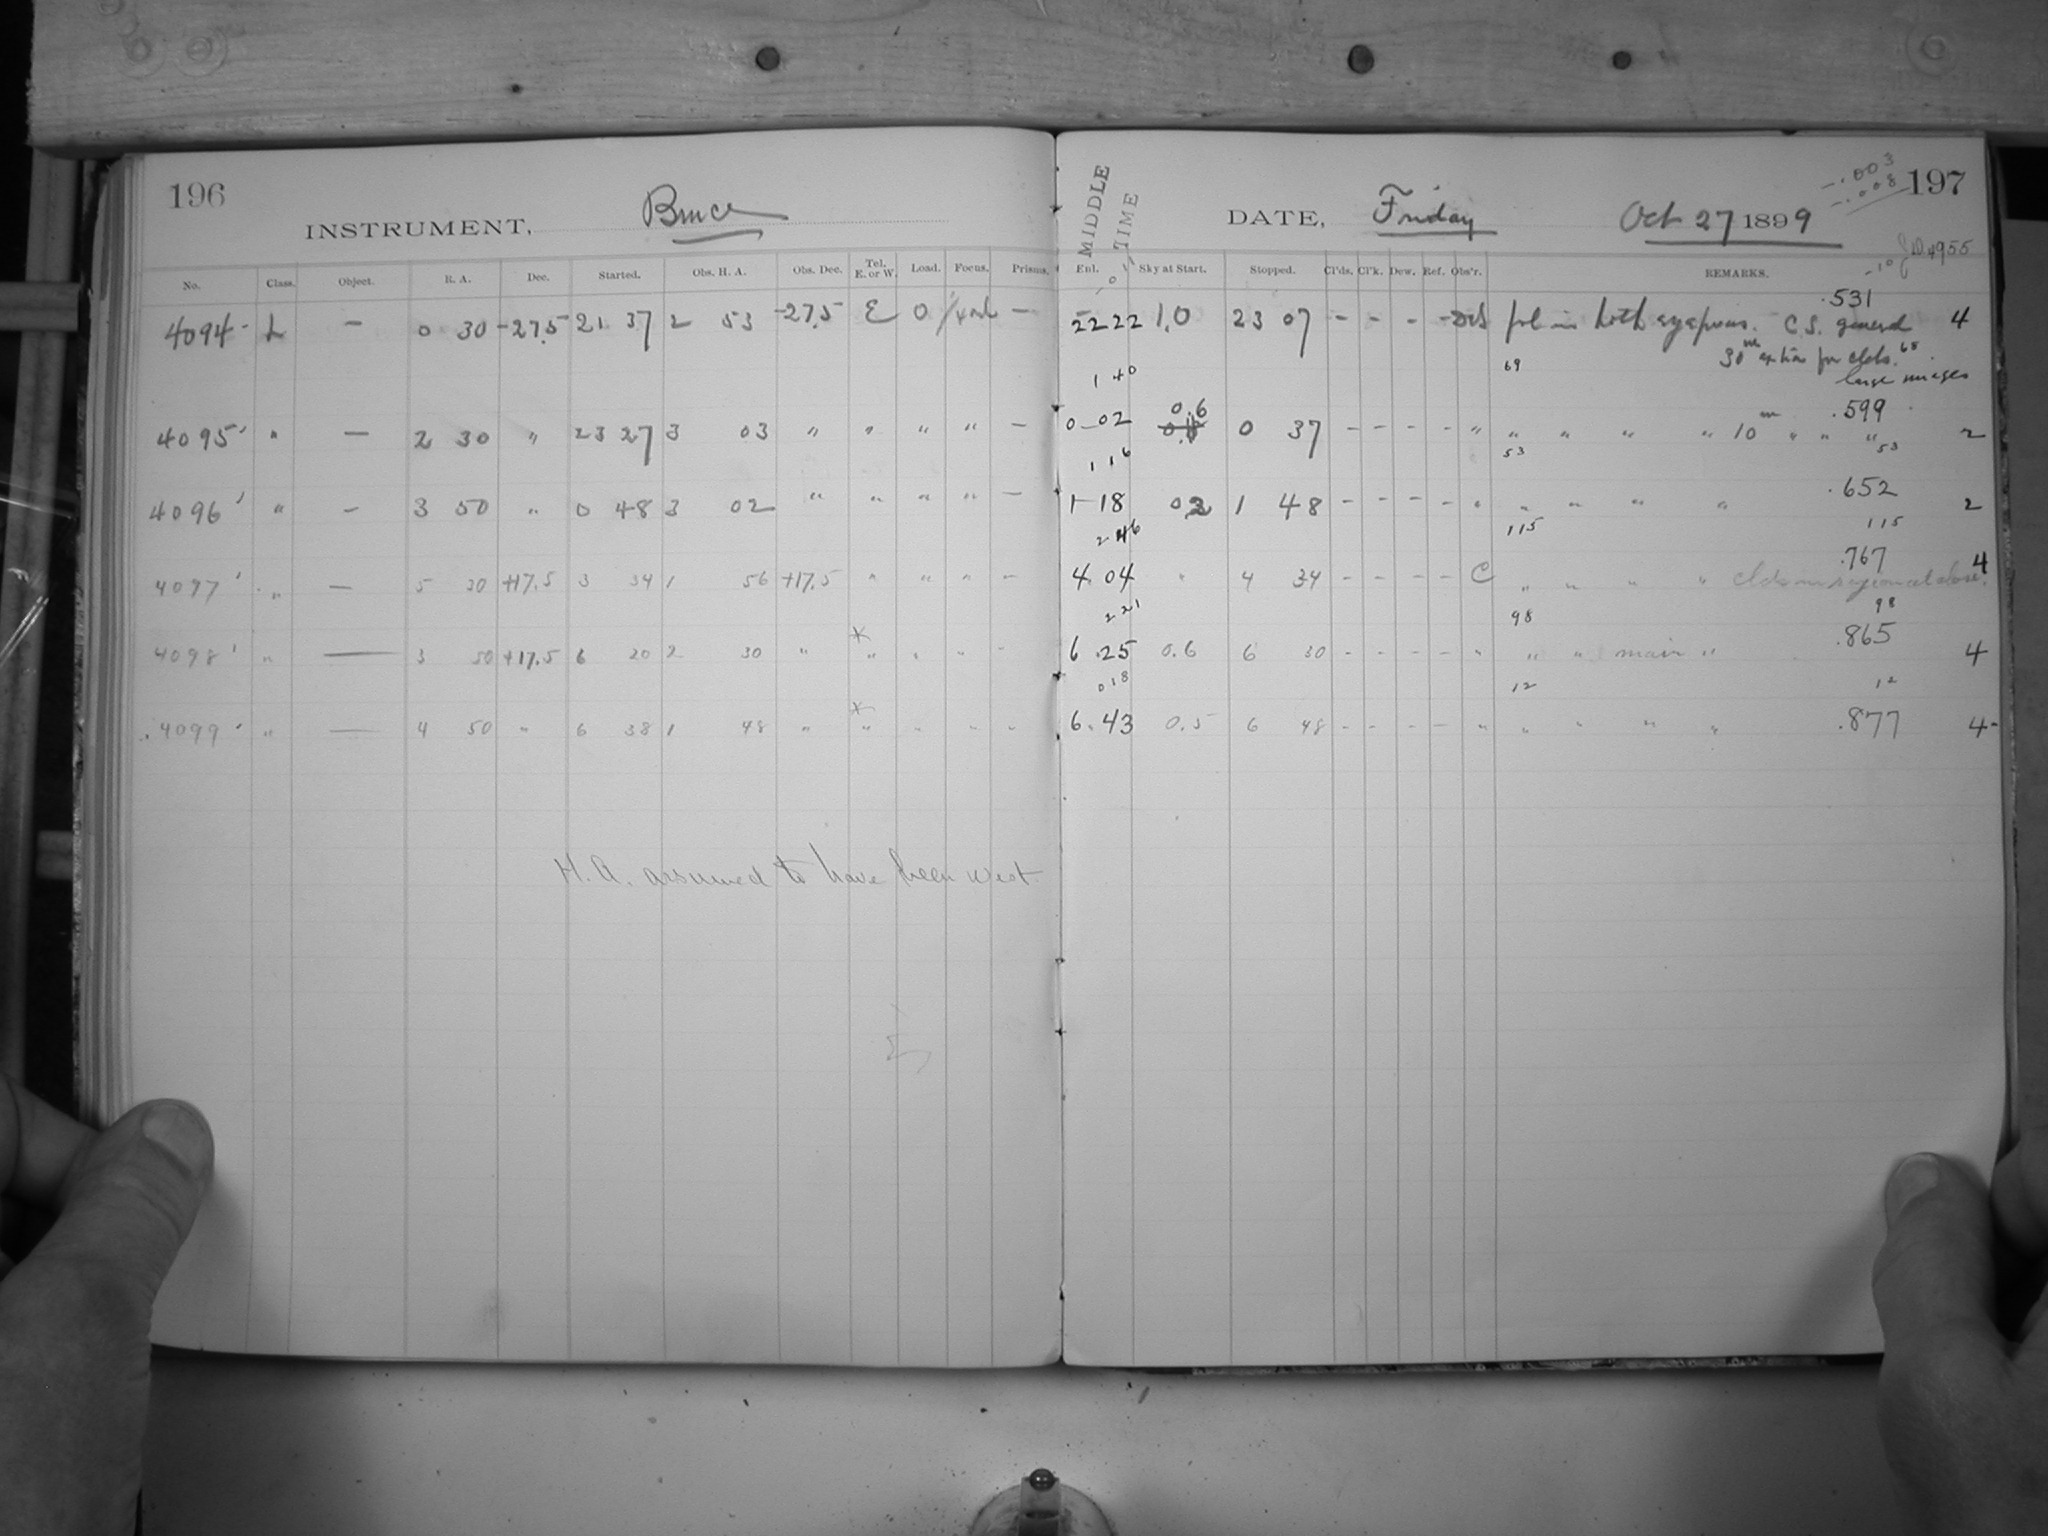 196
INSTRUMENT, Bruce
No. Class. Object. R. A. Dec. Started. Obs. H. A. Obs. Dec. Tel. E. or W. Load. Focus. Prisms.
4094 L — 0 30 -27.5 21 37 2 53 -27.5 E 0 —
4095 " — 2 30 " 23 27 3 03 " " " " —
4096 " — 3 50 " 0 48 3 02 " " " " —
4097 " — 5 30 +17.5 3 34 1 56 +17.5 " " " —
4098 " — 3 50 +17.5 6 20 2 30 " * " " " "
4099 " — 4 50 " 6 38 1 48 " * " " " "
H. A. assumed to have been west.
MIDDLE TIME
DATE, Friday Oct 27 1899
-.003
-.008
197
4955
Enl. Sky at Start. Stopped. Cl'ds. Cl'k. Dew. Ref. Obs'r. REMARKS.
.531
22 22 1.0 23 07 - - - - fol in both C. S. general 4
69 30m for clds. 68
large images
1 40
0.6 .599
0-02 0 37 - - - - " " " " " 10m " " " 2
53 53
1 16
.652
1-18 1 48 - - - - " " " " " 2
115 115
2 46
.767
4.04 " 4 34 - - - - C " " " " 4
98 98
2 21
.865
6.25 0.6 6 30 - - - - " " " main " 4
12 12
0 18
6.43 0.5 6 48 - - - - " " " " " .877 4-